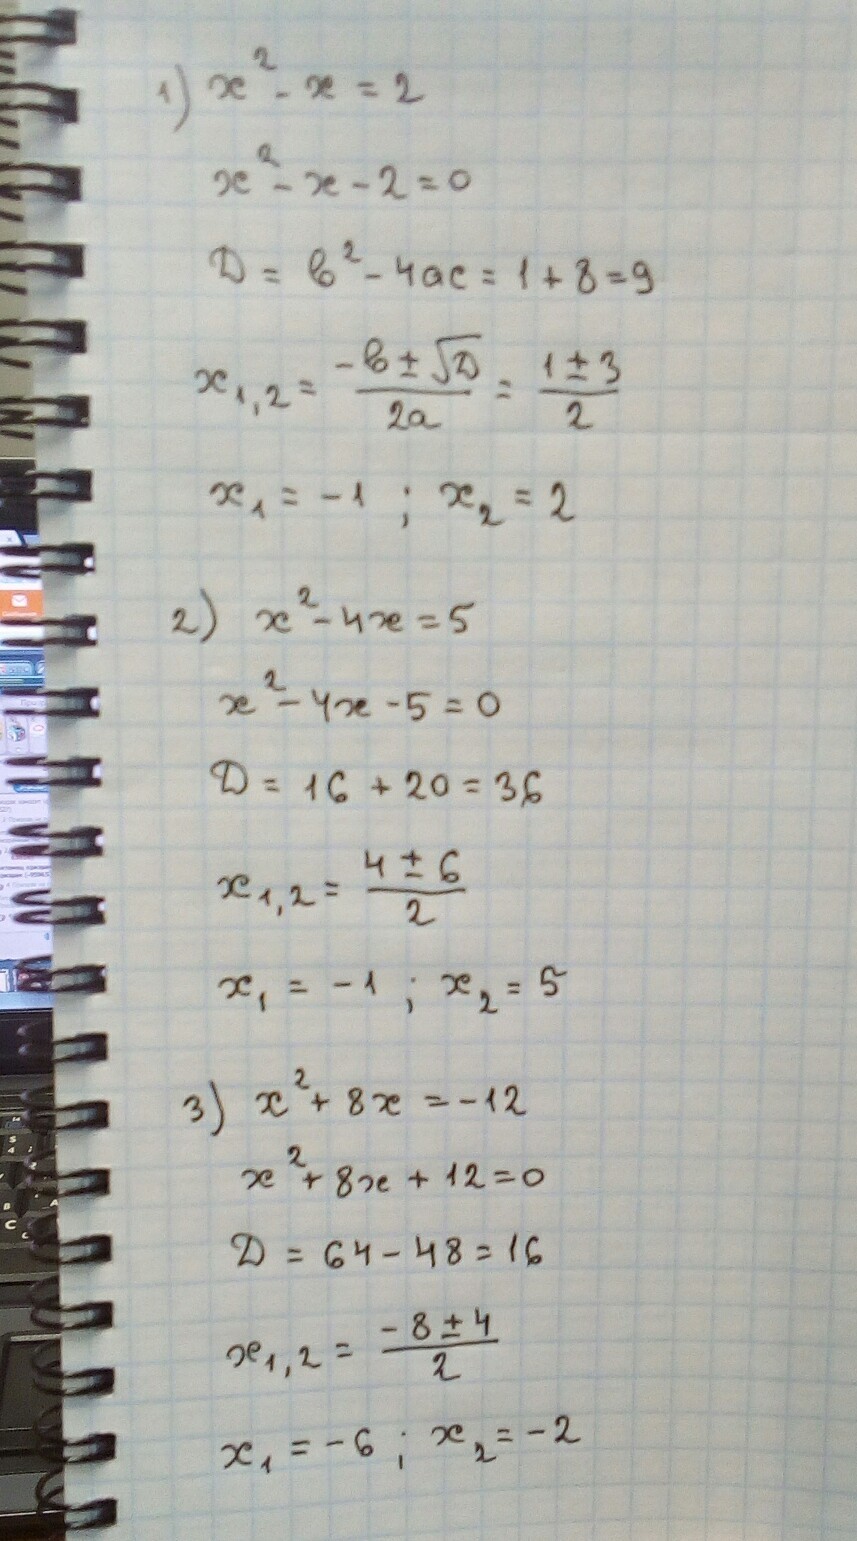 1) x² - x = 2
x² - x - 2 = 0
D = b² - 4ac = 1 + 8 = 9
x₁,₂ = (-b ± √D)/(2a) = (1 ± 3)/2
x₁ = -1 ; x₂ = 2
2) x² - 4x = 5
x² - 4x - 5 = 0
D = 16 + 20 = 36
x₁,₂ = (4 ± 6)/2
x₁ = -1 ; x₂ = 5
3) x² + 8x = -12
x² + 8x + 12 = 0
D = 64 - 48 = 16
x₁,₂ = (-8 ± 4)/2
x₁ = -6 ; x₂ = -2